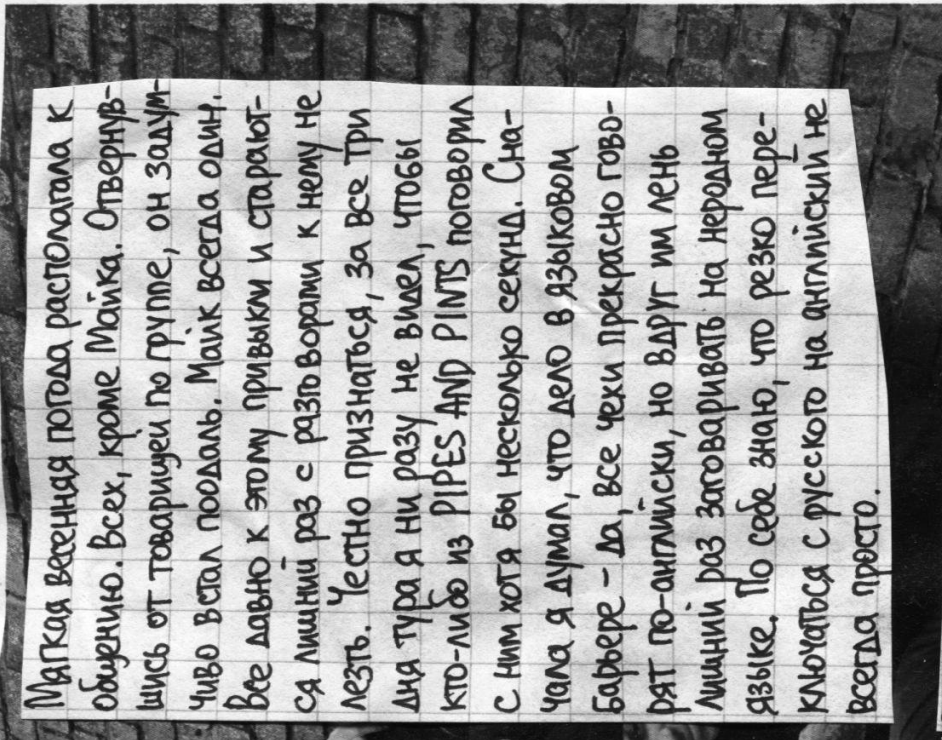 Мягкая весенняя погода располагала к
общению. Всех, кроме Майка. Отвернув-
шись от товарищей по группе, он задум-
чиво встал поодаль. Майк всегда один.
Все давно к этому привыкли и старают-
ся лишний раз с разговорами к нему не
лезть. Честно признаться, за все три
дня тура я ни разу не видел, чтобы
кто-либо из PIPES AND PINTS поговорил
с ним хотя бы несколько секунд. Сна-
чала я думал, что дело в языковом
барьере - да, все чехи прекрасно гово-
рят по-английски, но вдруг им лень
лишний раз заговаривать на неродном
языке. По себе знаю, что резко пере-
ключаться с русского на английский не
всегда просто.